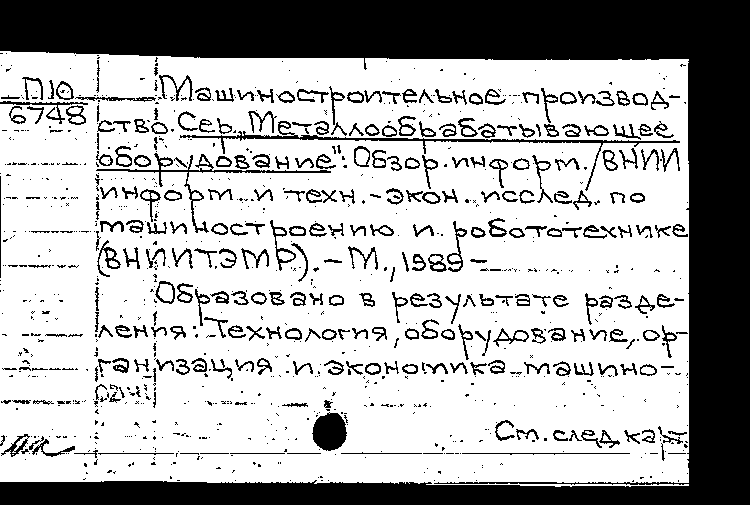 П10
6748
Машиностроительное производ-
ство. Сер. "Металлообрабатывающее
оборудование": Обзор. информ. / ВНИИ
информ. и техн.-экон. исслед. по
машиностроению и робототехнике
(ВНИИТЭМР). - М., 1989 -
Образовано в результате разде-
ления: Технология, оборудование, ор-
ганизация и экономика машино-
См. след. карт.